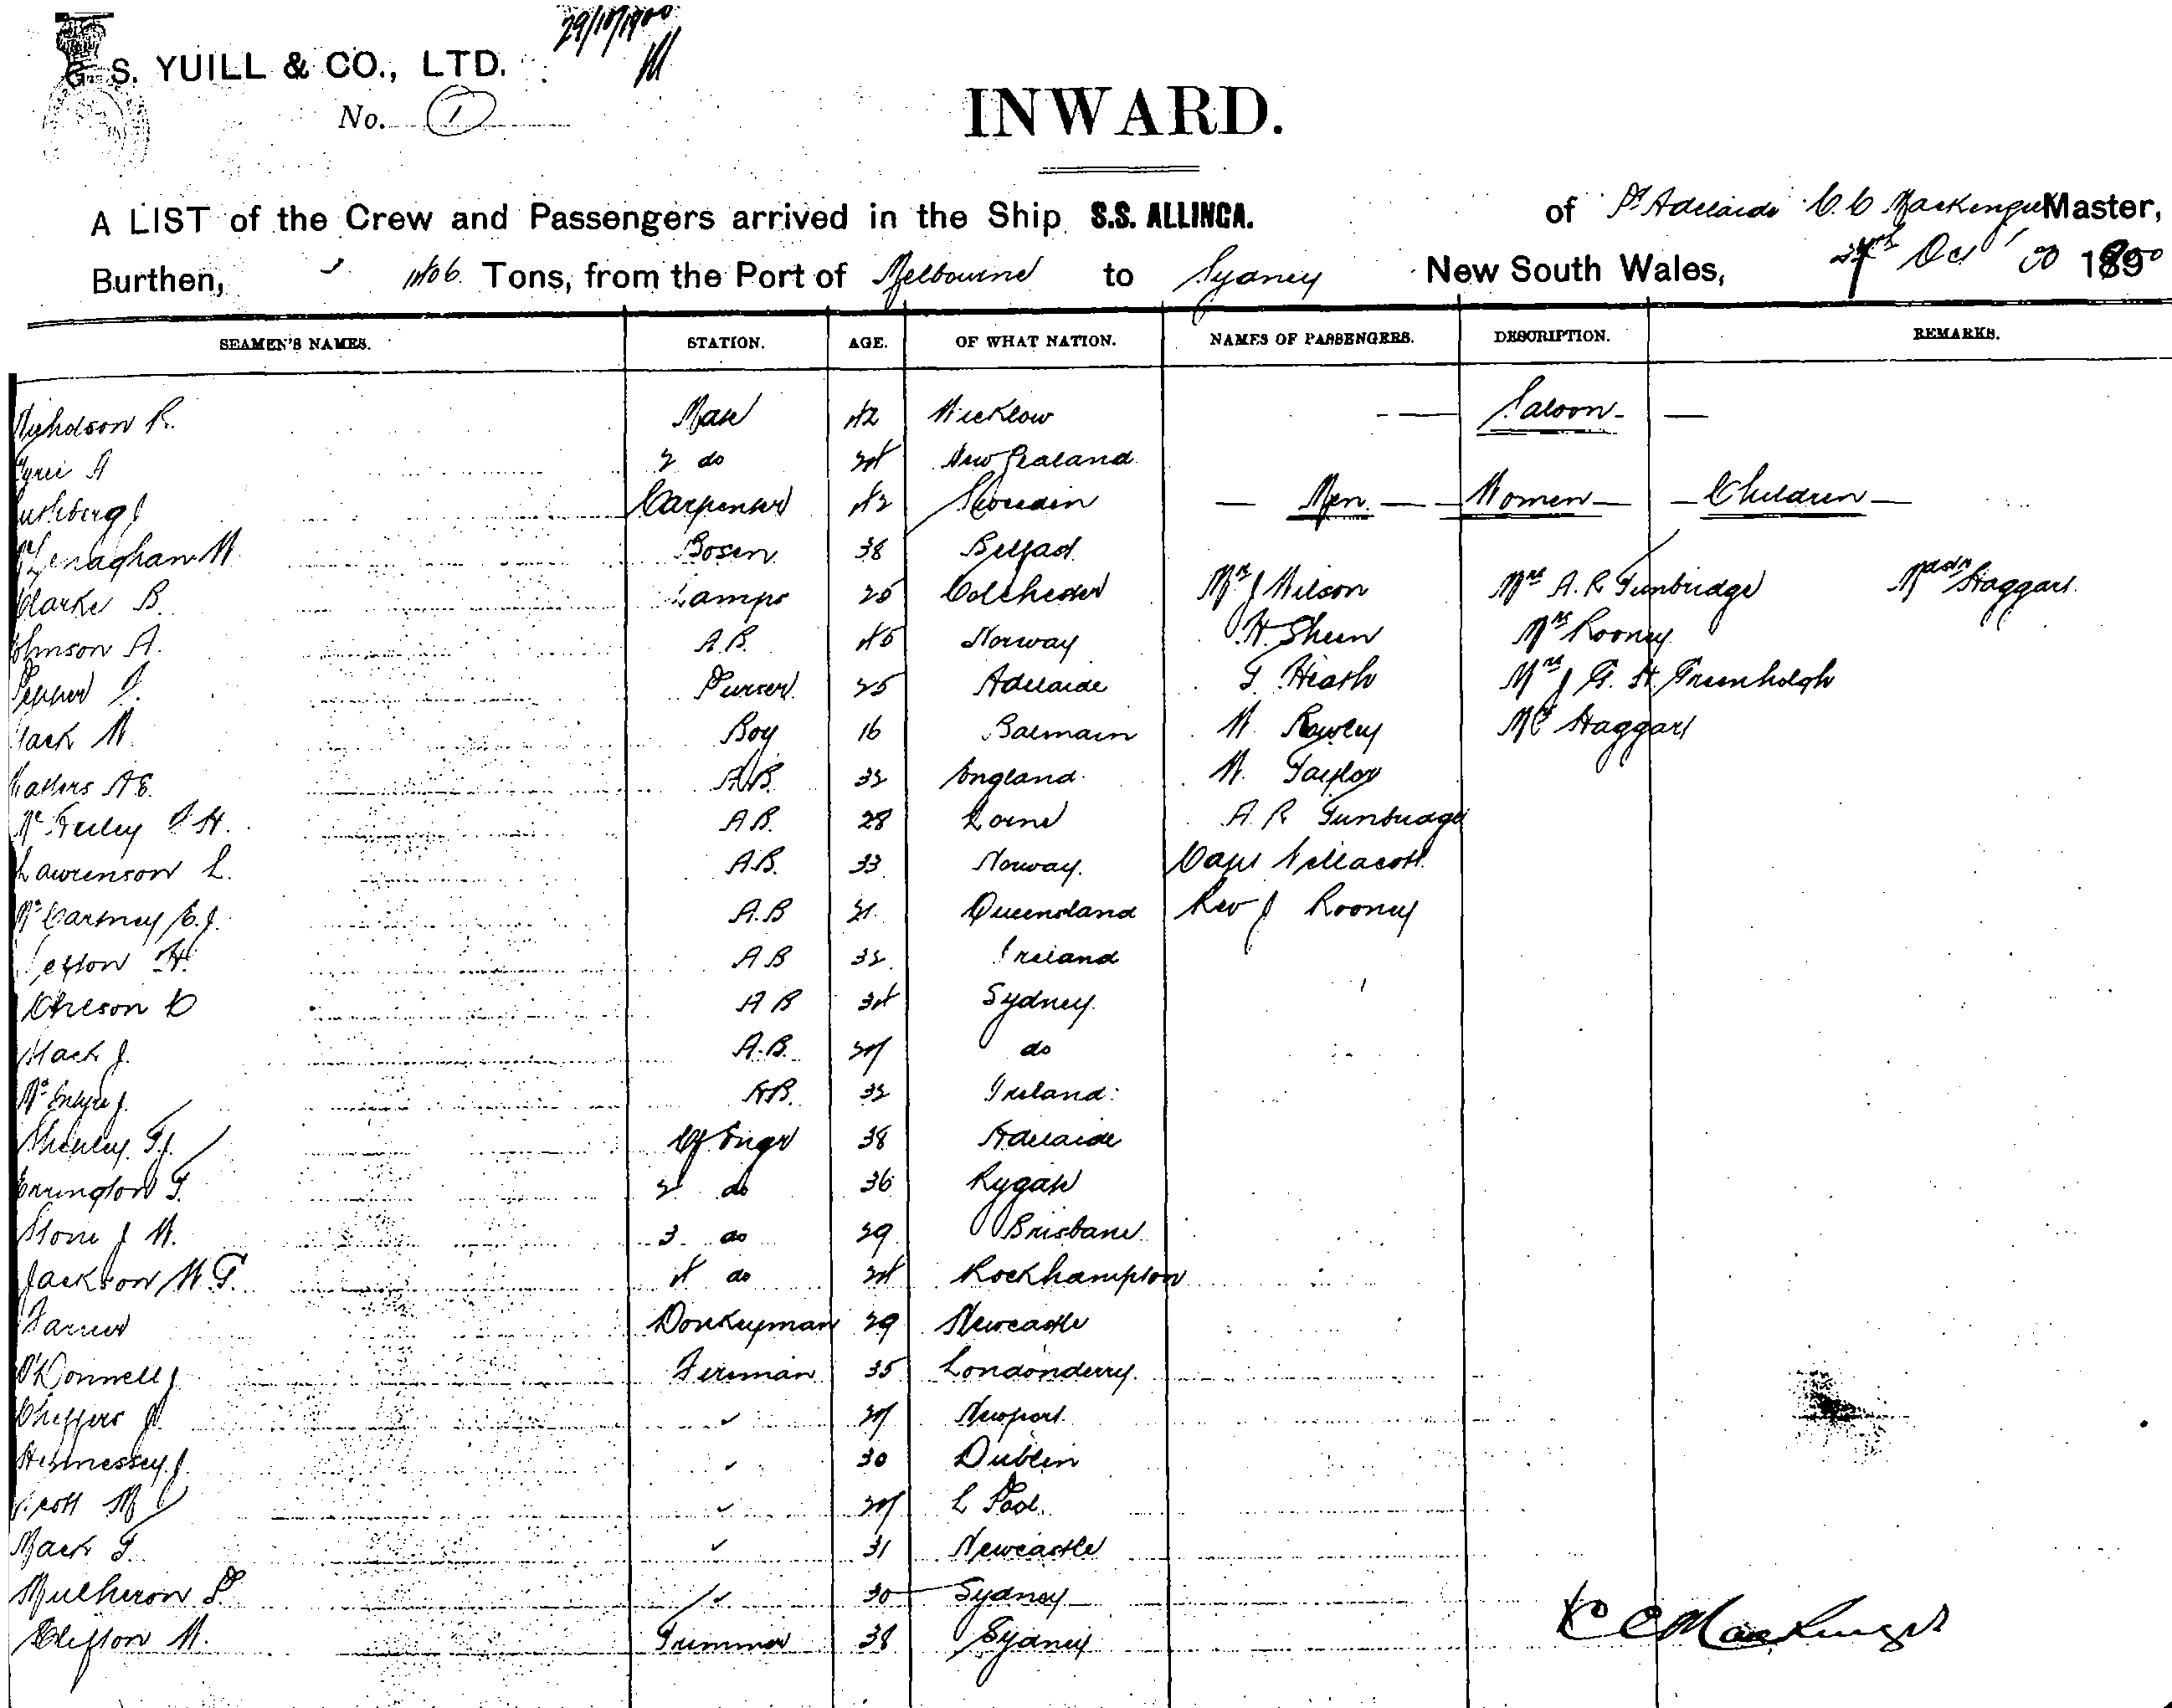 29/10/1900
G. S. YUILL & CO., LTD.
No. 1
INWARD.
A LIST of the Crew and Passengers arrived in the Ship S.S. ALLINGA. of Pt Adelaide C. C Mackenzie Master,
Burthen, Tons, from the Port of Melbourne to Sydney New South Wales, Oct 00 1900
SEAMEN'S NAMES. STATION. AGE. OF WHAT NATION. NAMES OF PASSENGERS. DESCRIPTION. REMARKS.
Nicholson R. Mate 42 Wicklow Saloon
A 2 do 24 New Zealand
J Carpenter 42 Sweeden Men Women Children
McLenaghan W Bosen 38 Belfast
Clarke B. Lamps 25 Colchester Mrs J Wilson Mrs A. R Tunbridge Mastr Haggart
Johnson A. A.B. 45 Norway H. Sheen Mrs Rooney
Pepper Purser 25 Adelaide T. Heath Mrs J G. H. Greenholgh
Mack W. Boy 16 Balmain W Rowley Mrs Haggart
A E. A.B. 32 England W. Taylor
H. A.B. 28 Lorne A. R Tunbridge
Lawrenson L. A.B. 33 Norway. Capt Vellacott
McCartney C. J. A.B 21 Queensland Rev J Rooney
Sefton H. A B 32 Ireland
C A B 34 Sydney.
Mack J. A.B. 27 do
McIntyre J. A.B. 32 Ireland
Shenley T. J. Cf Engr 38 Adelaide
Errington T. 2 do 36
Stone J W. 3 do 29 Brisbane
Jackson W. T. 4 do 24 Rockhampton
Farrer Donkeyman 29 Newcastle
O'Connell J Fireman 35 Londonderry.
Cheffers ✓ 27 Newport.
Hennessey J. ✓ 30 Dublin
Scott M ✓ 27 L Pool.
Mack T. ✓ 31 Newcastle
Mulheron P. ✓ 30 Sydney
Clifton W. Trimmer 38 Sydney
C C Mackenzie